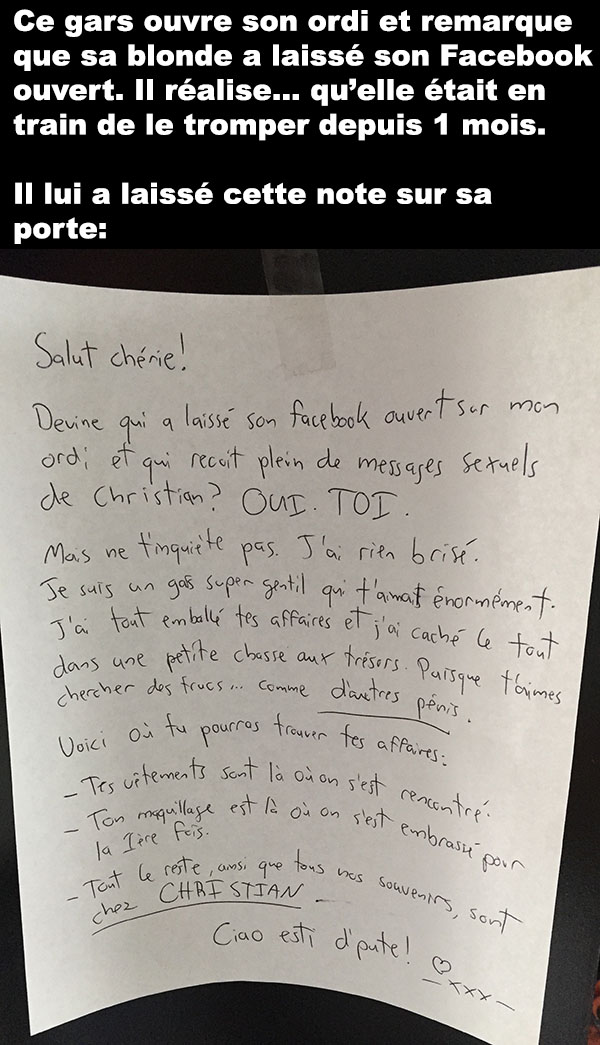 Ce gars ouvre son ordi et remarque
que sa blonde a laissé son Facebook
ouvert. Il réalise... qu'elle était en
train de le tromper depuis 1 mois.
Il lui a laissé cette note sur sa
porte:
Salut chérie!
Devine qui a laissé son facebook ouvert sur mon
ordi et qui recoit plein de messages sexuels
de Christian? OUI. TOI.
Mais ne t'inquiète pas. J'ai rien brisé.
Je suis un gas super gentil qui t'aimait énormément.
J'ai tout emballé tes affaires et j'ai caché le tout
dans une petite chasse aux trésors. Puisque t'aimes
chercher des trucs... comme d'autres pénis.
Voici où tu pourras trouver tes affaires:
- Tes vêtements sont là où on s'est rencontré.
- Ton maquillage est là où on s'est embrassé pour
la 1ère fois.
- Tout le reste, ainsi que tous nos souvenirs, sont
chez CHRISTIAN.
Ciao esti d'pute! ♡
-xxx-